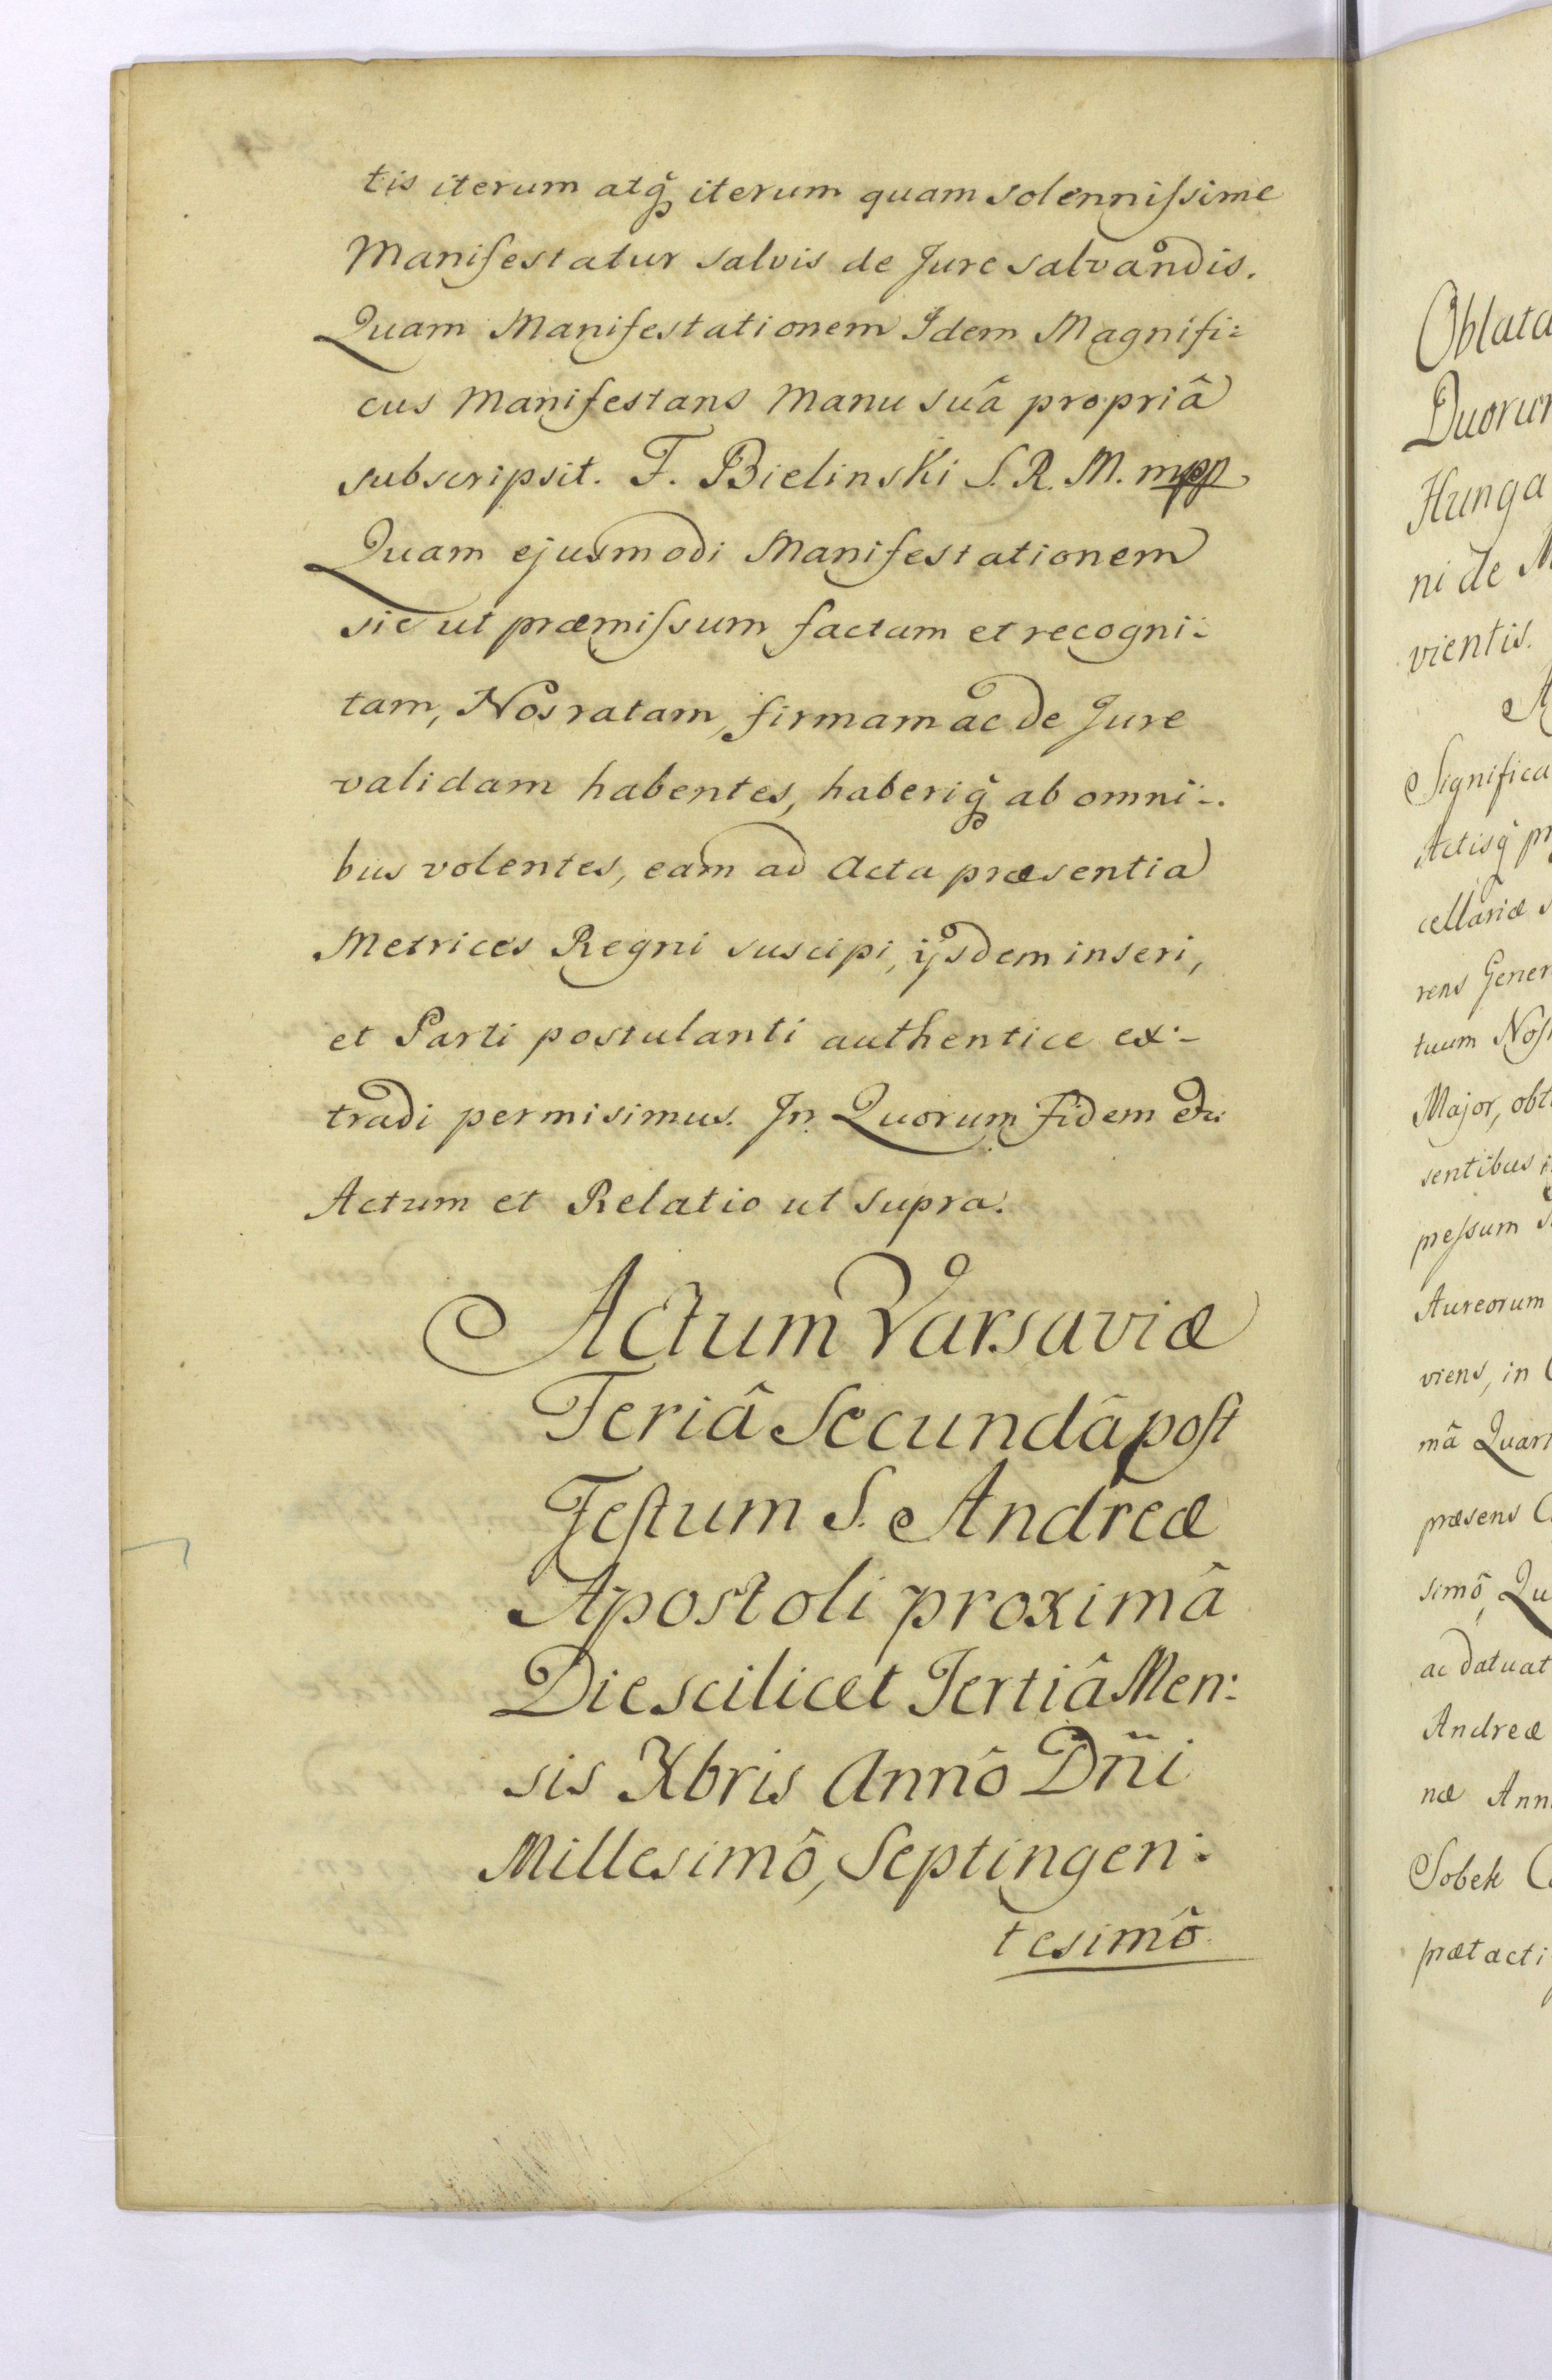 tis iterum atq̃ iterum quam solennissime
Manifestatur salvis de Jure salvandis.
Quam Manifestationem Idem Magnifi:
cus Manifestans Manu suâ propriâ
subscripsit. F. Bielinski S. R. M. mpp
Quam ejusmodi Manifestationem
sic ut præmissum factam et recogni:
tam, Nos ratam, firmam ac de Jure
validam habentes, haberiq̃ ab omni:
bus volentes, eam ad Acta præsentia
Metrices Regni suscipi, ijsdem inseri,
et Parti postulanti authentice ex:
tradi permisimus. In Quorum Fidem &c:
Actum et Relatio ut supra.
Actum Varsaviæ
Feriâ Secundâ post
Festum S. Andreæ
Apostoli proximâ
Die scilicet Tertiâ Men:
sis Xbris Annô Dñi
Millesimô, Septingen:
tesimô
Oblata
Hunga
ni de M
vientis.
Significa
Actisq̃ pr
cellariæ s
rens Gener
tuum Nos
Major, obt
sentibus
pressum S
Aureorum
viens, in
mâ Quar
præsens C
simô, Qu
ac datuat
Andreæ
næ Ann
Sobek C
prætacti